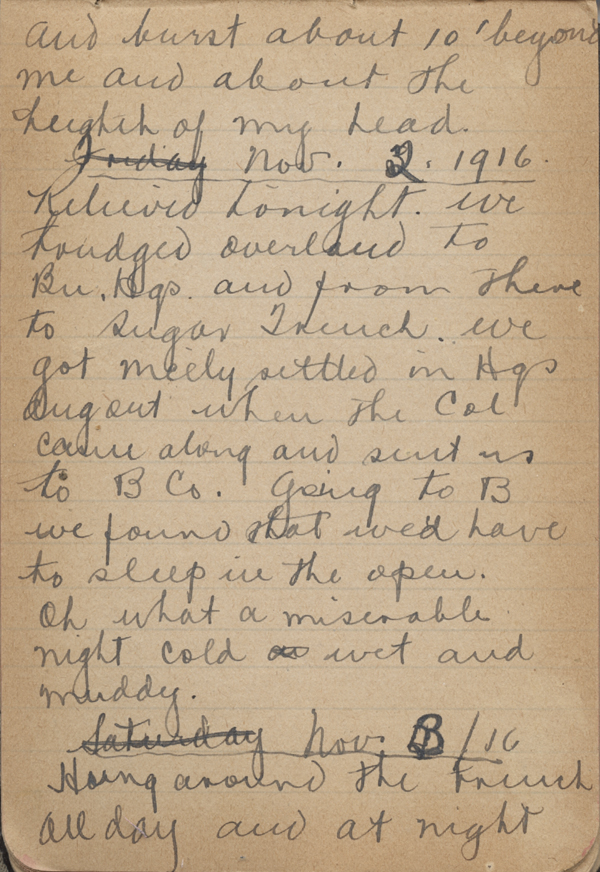 and burst about 10' beyond
me and about the
heighth of my head.
Friday Nov. 2. 1916.
Relieved tonight. we
trudged overland to
Bn. Hqs. and from there
to Sugar Trench. we
got nicely settled in Hqs
dugout when the Col
came along and sent us
to B Co. Going to B
we found that we'd have
to sleep in the open.
Oh what a miserable
night cold as wet and
muddy.
Saturday Nov. 3/16
Hung around the trench
all day and at night